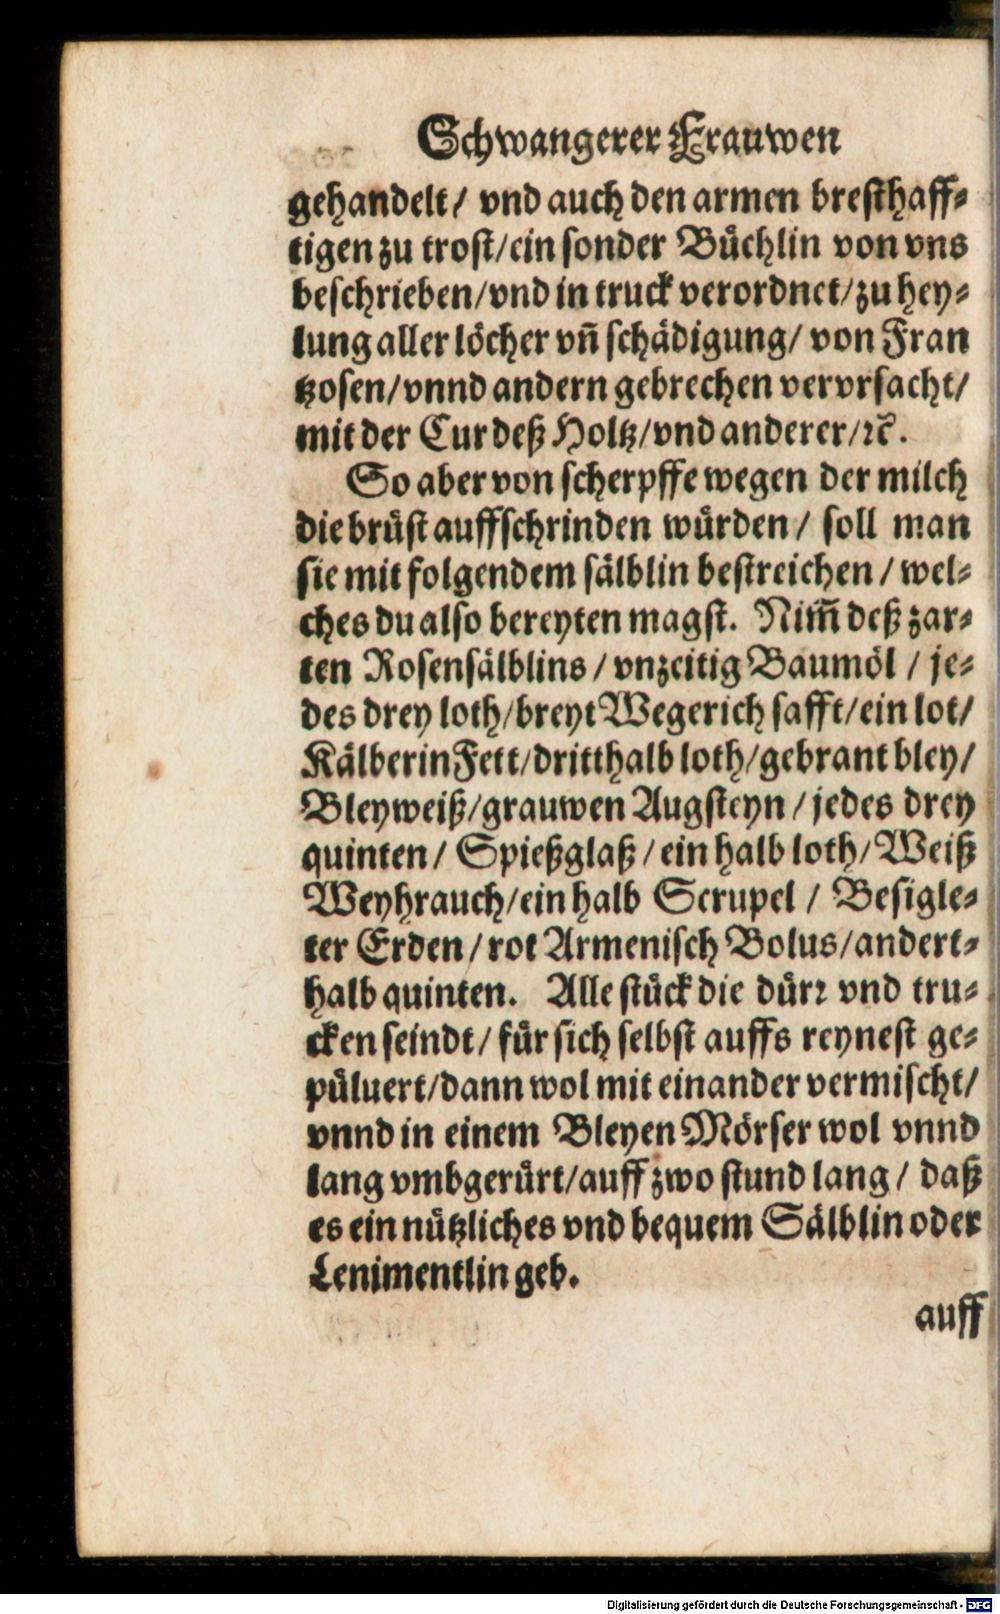 Schwangerer Frauwen
gehandelt / vnd auch den armen bresthaff⸗
tigen zu trost/ein sonder Büchlin von vns
beschrieben/vnd in truck verordnet/zu hey⸗
lung aller löcher vñ schädigung/ von Fran
tzosen/vnnd andern gebrechen vervrsacht/
mit der Cur deß Holtz/vnd anderer/ꝛc̃.
So aber von scherpffe wegen der milch
die brüst auffschrinden würden / soll man
sie mit folgendem sälblin bestreichen / wel⸗
ches du also bereyten magst. Nim̃ deß zar⸗
ten Rosensälblins / vnzeitig Baumöl / je⸗
des drey loth/breyt Wegerich safft/ein lot/
Kälberin Fett/dritthalb loth/gebrant bley/
Bleyweiß/grauwen Augsteyn / jedes drey
quinten / Spießglaß / ein halb loth/ Weiß
Weyhrauch/ein halb Scrupel / Besigle⸗
ter Erden / rot Armenisch Bolus/andert⸗
halb quinten. Alle stück die dürꝛ vnd tru⸗
cken seindt / für sich selbst auffs reynest ge⸗
püluert/dann wol mit einander vermischt/
vnnd in einem Bleyen Mörser wol vnnd
lang vmbgerürt/auff zwo stund lang / daß
es ein nützliches vnd bequem Sälblin oder
Lenimentlin geb.
auff
Digitalisierung gefördert durch die Deutsche Forschungsgemeinschaft - DFG